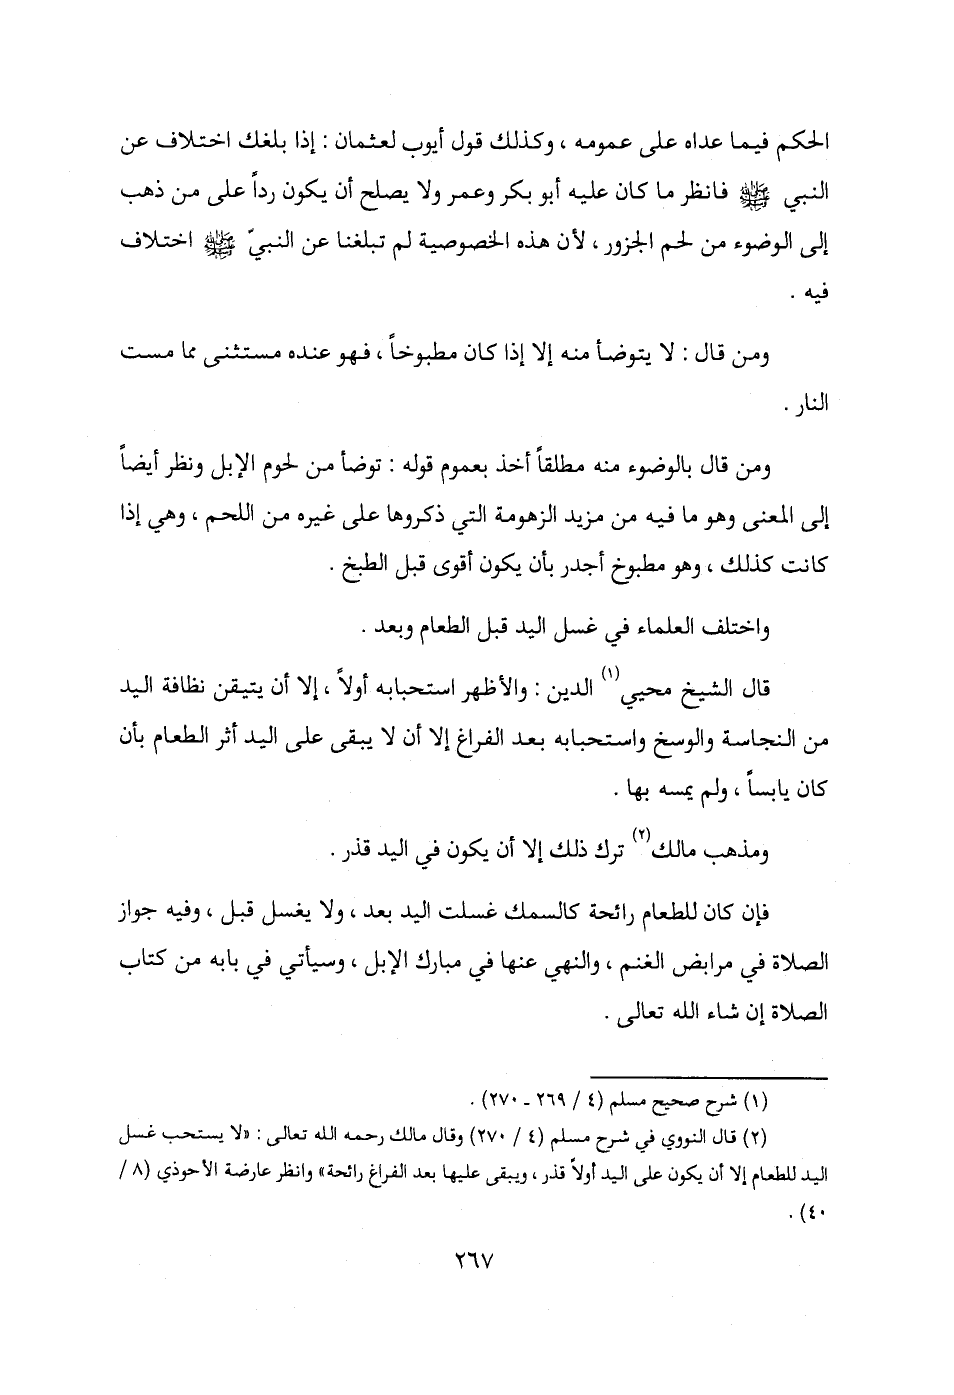 الحكم فيما عداه على عمومه ، وكذلك قول أيوب لعثمان : إذا بلغك اختلاف عن
النبي ﷺ فانظر ما كان عليه أبو بكر وعمر ولا يصلح أن يكون رداً على من ذهب
إلى الوضوء من لحم الجزور ، لأن هذه الخصوصية لم تبلغنا عن النبيّ ﷺ اختلاف
فيه .
ومن قال : لا يتوضأ منه إلا إذا كان مطبوخاً ، فهو عنده مستثنى مما مست
النار .
ومن قال بالوضوء منه مطلقاً أخذ بعموم قوله : توضأ من لحوم الإبل ونظر أيضاً
إلى المعنى وهو ما فيه من مزيد الزهومة التي ذكروها على غيره من اللحم ، وهي إذا
كانت كذلك ، وهو مطبوخ أجدر بأن يكون أقوى قبل الطبخ .
واختلف العلماء في غسل اليد قبل الطعام وبعد .
قال الشيخ محيي(١) الدين : والأظهر استحبابه أولاً ، إلا أن يتيقن نظافة اليد
من النجاسة والوسخ واستحبابه بعد الفراغ إلا أن لا يبقى على اليد أثر الطعام بأن
كان يابساً ، ولم يمسه بها .
ومذهب مالك(٢) ترك ذلك إلا أن يكون في اليد قذر .
فإن كان للطعام رائحة كالسمك غسلت اليد بعد ، ولا يغسل قبل ، وفيه جواز
الصلاة في مرابض الغنم ، والنهي عنها في مبارك الإبل ، وسيأتي في بابه من كتاب
الصلاة إن شاء الله تعالى .
(١) شرح صحيح مسلم (٤ / ٢٦٩ ـ ٢٧٠) .
(٢) قال النووي في شرح مسلم (٤ / ٢٧٠) وقال مالك رحمه الله تعالى : «لا يستحب غسل
اليد للطعام إلا أن يكون على اليد أولاً قذر ، ويبقى عليها بعد الفراغ رائحة» وانظر عارضة الأحوذي (٨ /
٤٠) .
٢٦٧